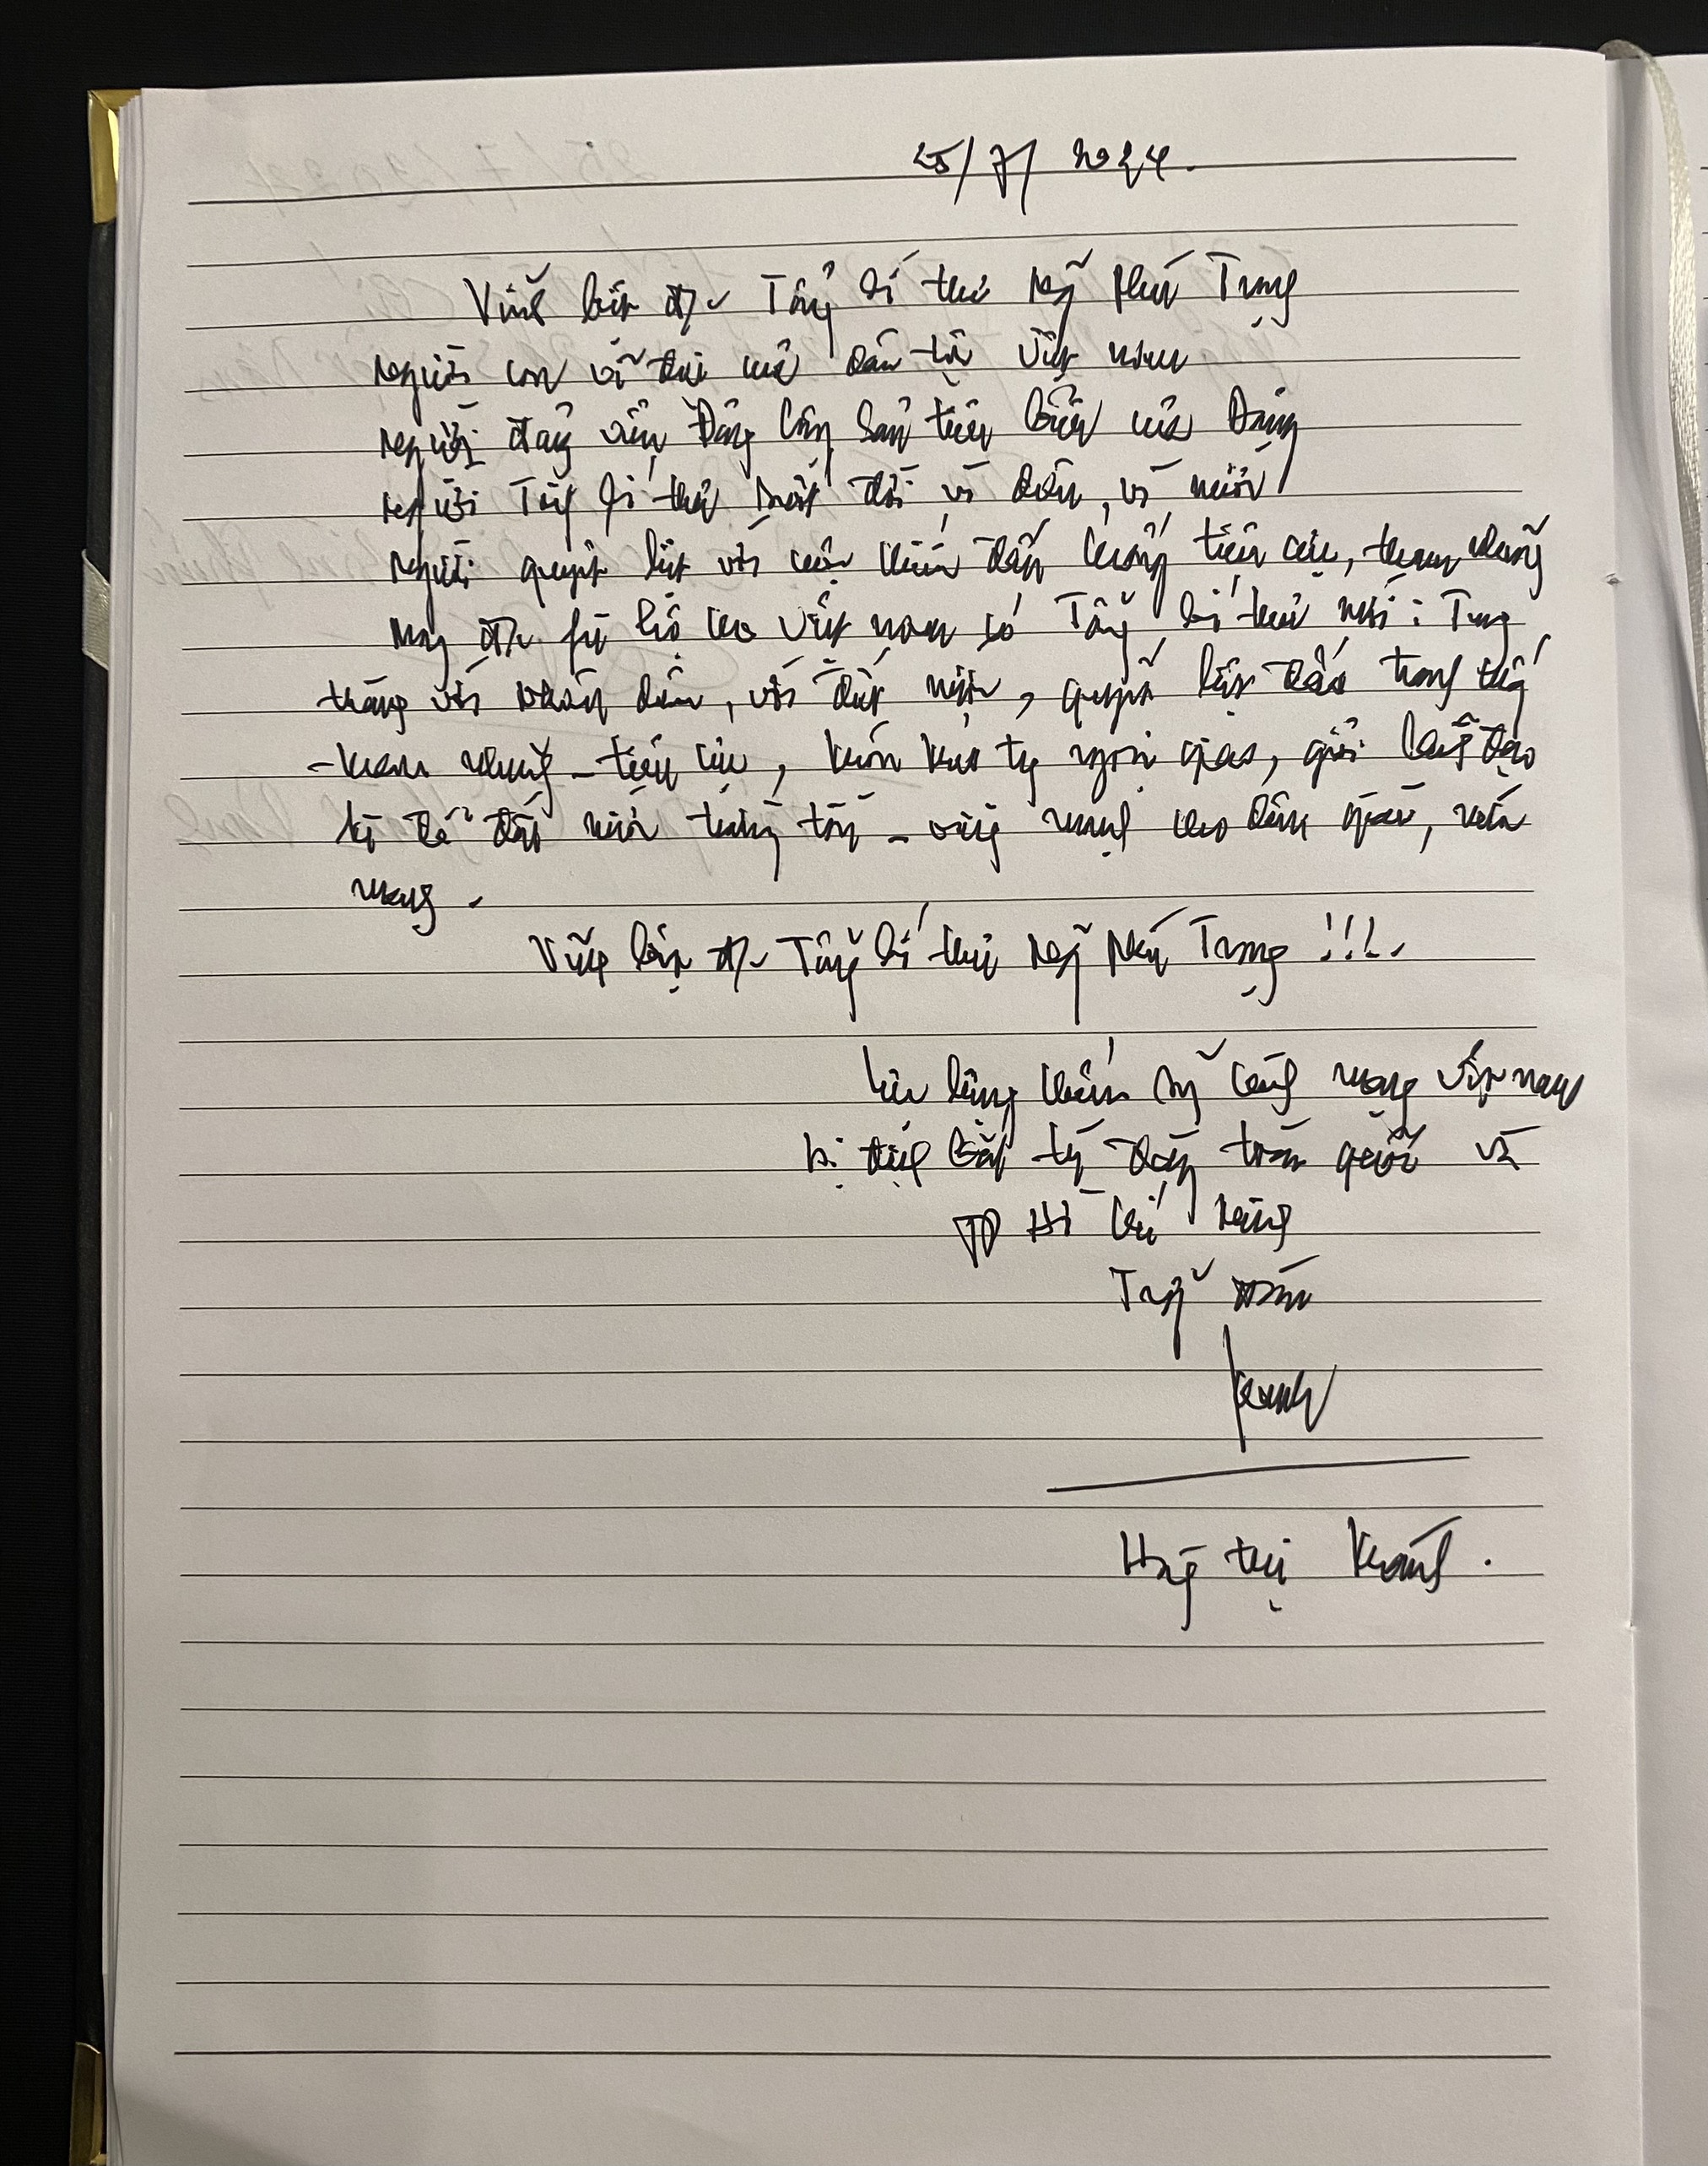 25/7/2024.
Vĩnh biệt đ/c Tổng Bí thư Ng~ Phú Trọng
Người con vĩ đại của dân tộc Việt Nam
Người đảng viên Đảng Cộng Sản tiêu biểu của Đảng
Người Tổng Bí thư suốt đời vì dân, vì nước
Người quyết liệt với cuộc chiến đấu chống tiêu cực, tham nhũng
Mong đ/c phù hộ cho Việt Nam có Tổng Bí thư mới: Trung
thành với nhân dân, với đất nước, quyết liệt đấu tranh chống
- tham nhũng - tiêu cực, khôn khéo trong ngoại giao, giỏi lãnh đạo
kinh tế để đất nước trường tồn - vững mạnh cho dân giàu, nước
mạnh.
Vĩnh biệt đ/c Tổng Bí thư Ng~ Phú Trọng !!!.
Câu lạc bộ chiến sỹ cách mạng Việt Nam
bị địch bắt tù đày toàn quốc và
TP Hồ Chí Minh
Trưởng đoàn
Khánh
Hoàng Thị Khánh.